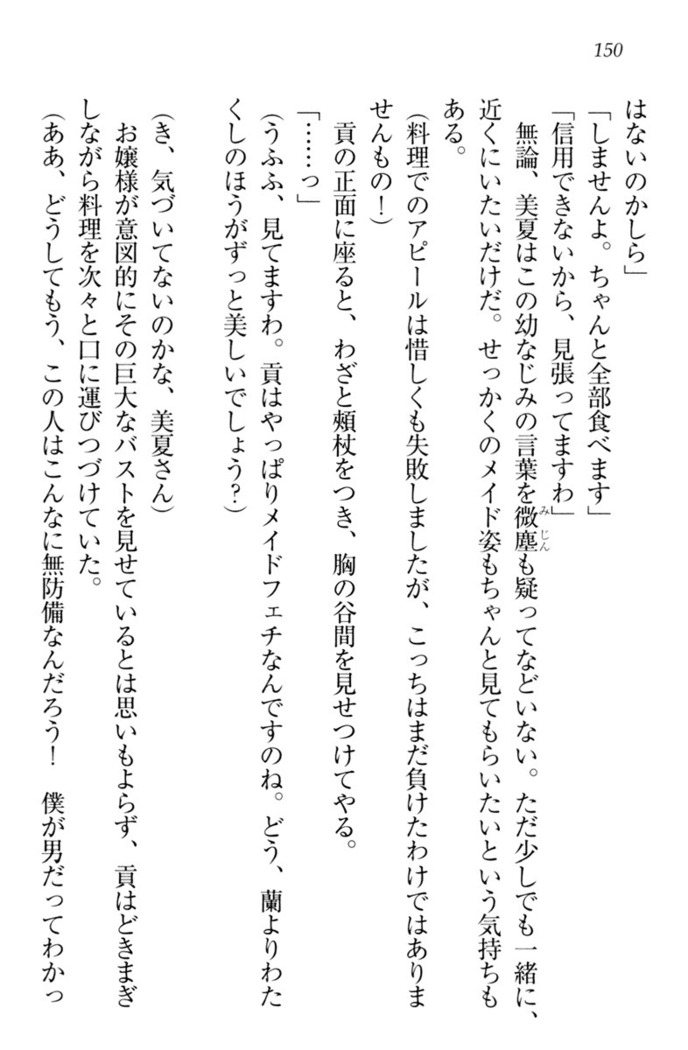 150
はないのかしら」
「しませんよ。ちゃんと全部食べます」
「信用できないから、見張ってますわ」
　無論、美夏はこの幼なじみの言葉を微塵も疑ってなどいない。ただ少しでも一緒に、
近くにいたいだけだ。せっかくのメイド姿もちゃんと見てもらいたいという気持ちも
ある。
（料理でのアピールは惜しくも失敗しましたが、こっちはまだ負けたわけではありま
せんもの！）
　貢の正面に座ると、わざと頬杖をつき、胸の谷間を見せつけてやる。
「……っ」
（うふふ、見てますわ。貢はやっぱりメイドフェチなんですのね。どう、蘭よりわた
くしのほうがずっと美しいでしょう？）
（き、気づいてないのかな、美夏さん）
　お嬢様が意図的にその巨大なバストを見せているとは思いもよらず、貢はどきまぎ
しながら料理を次々と口に運びつづけていた。
（ああ、どうしてもう、この人はこんなに無防備なんだろう！　僕が男だってわかっ